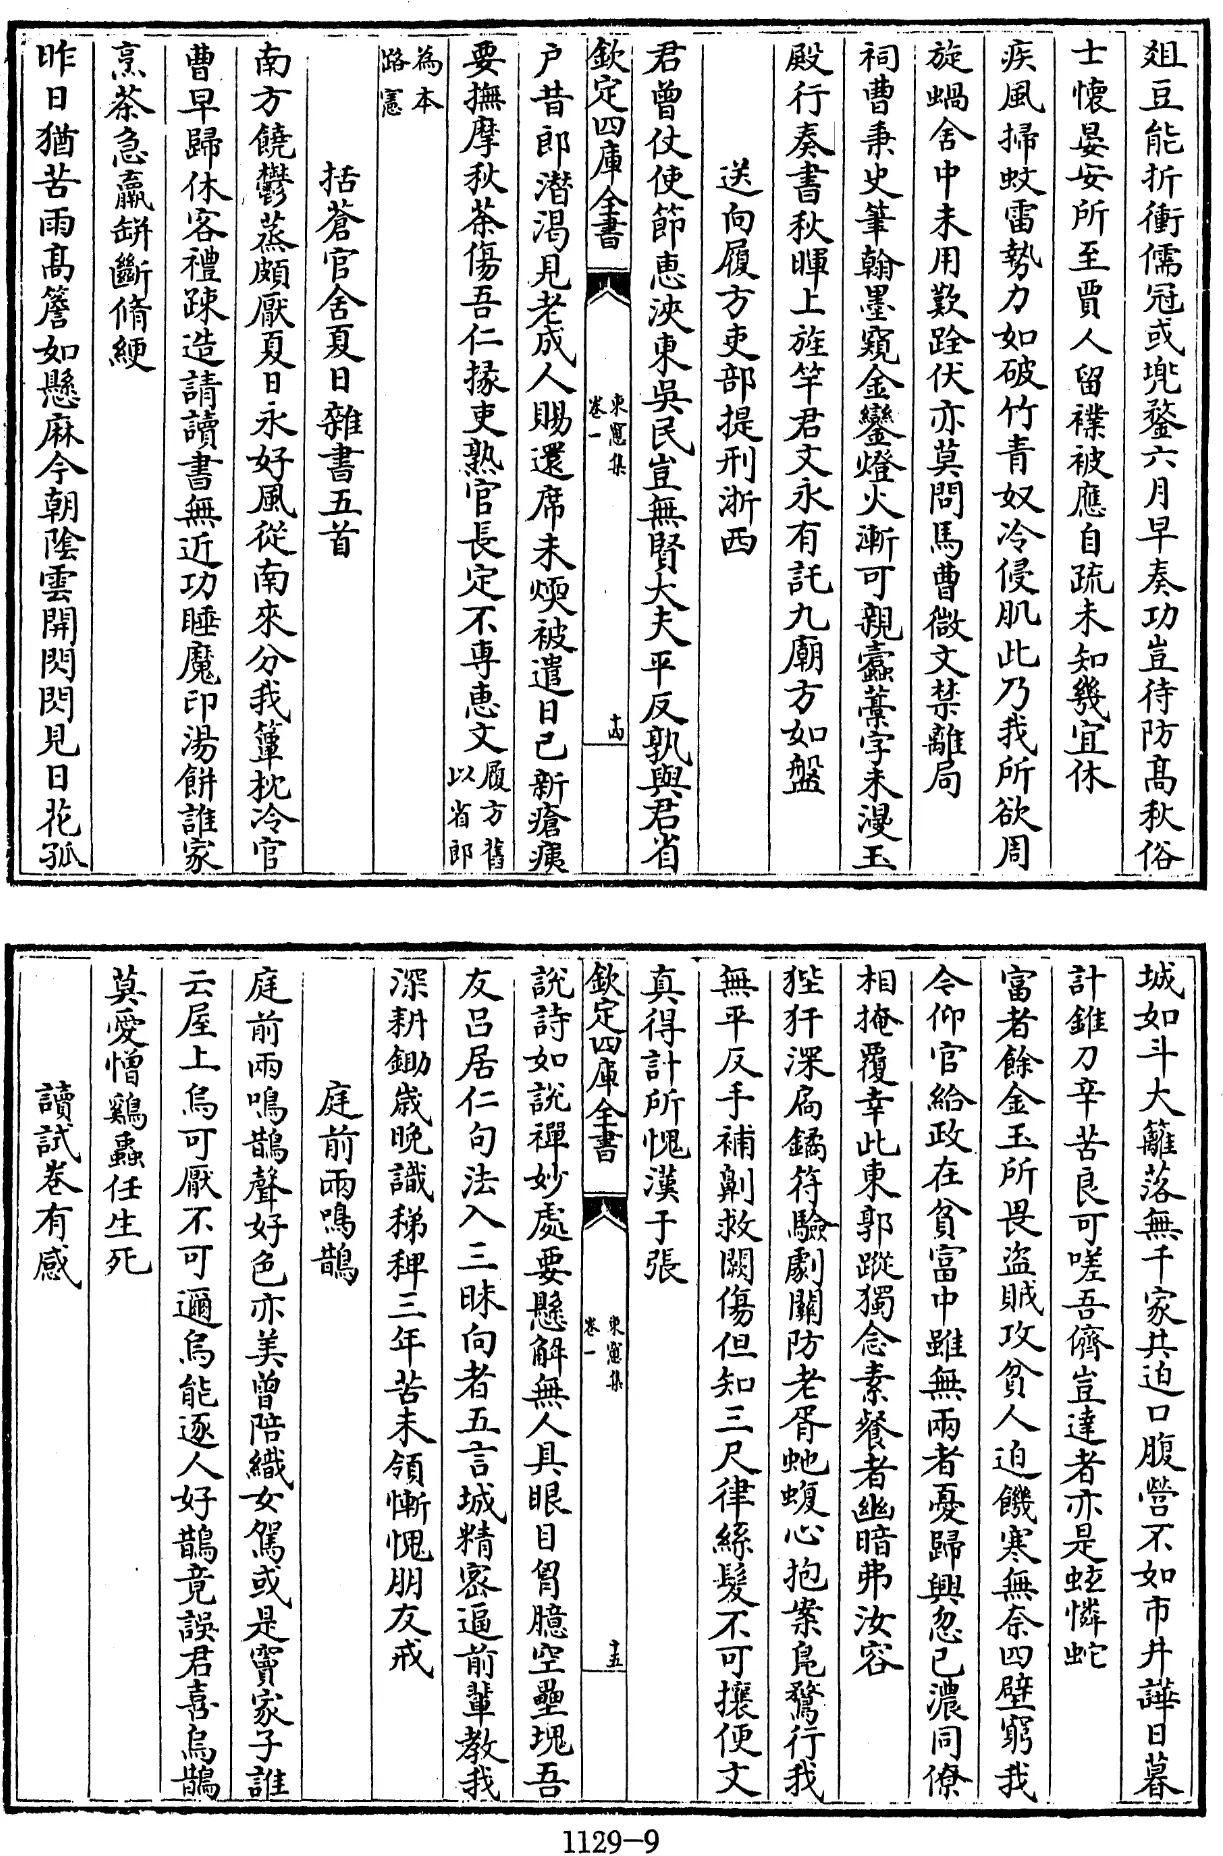 爼豆能折衝儒冠或兠鍪六月早奏功豈待防髙秋俗
士懷晏安所至賈人留襆被應自疏未知幾宜休
疾風掃蚊雷勢力如破竹青奴冷侵肌此乃我所欲周
旋蝸舍中未用歎跧伏亦莫問馬曹微文禁離局
祠曹秉史筆翰墨窺金鑾燈火漸可親蠧藁字未漫玉
殿行奏書秋暉上旌竿君文永有託九廟方如盤
送向履方吏部提刑浙西
君曾仗使節恵浹東吳民豈無賢大夫平反孰與君省
欽定四庫全書
東窻集
卷一
十四
户昔郎潜渴見老成人賜還席未煗被遣日已新瘡痍
要撫摩秋荼傷吾仁掾吏熟官長定不専恵文
履方舊
以省郎
為本
路憲
括蒼官舍夏日雜書五首
南方饒鬱蒸頗厭夏日永好風從南來分我簟枕冷官
曹早歸休客禮踈造請讀書無近功睡魔印湯餅誰家
烹茶急羸缾斷脩綆
昨日猶苦雨髙簷如懸麻今朝陰雲開閃閃見日花孤
城如斗大籬落無千家共迫口腹營不如市井譁日暮
計錐刀辛苦良可嗟吾儕豈達者亦是蚿憐蛇
富者餘金玉所畏盜賊攻貧人迫饑寒無奈四壁窮我
今仰官給政在貧富中雖無兩者憂歸興忽已濃同僚
相掩覆幸此東郭蹤獨念素餐者幽暗弗汝容
狴犴深扃鐍符驗劇關防老胥虵蝮心抱案鳬鶩行我
無平反手補劓救闕傷但知三尺律絲髮不可攘便文
真得計所愧漢于張
欽定四庫全書
東窻集
卷一
十五
説詩如説禪妙處要懸解無人具眼目胷臆空壘塊吾
友吕居仁句法入三昧向者五言城精宻逼前輩教我
深耕鋤歲晚識稊稗三年苦未領慚愧朋友戒
庭前兩鳴鵲
庭前兩鳴鵲聲好色亦美曾陪織女駕或是竇家子誰
云屋上烏可厭不可邇烏能逐人好鵲竟誤君喜烏鵲
莫愛憎鷄蟲任生死
讀試卷有感
1129-9